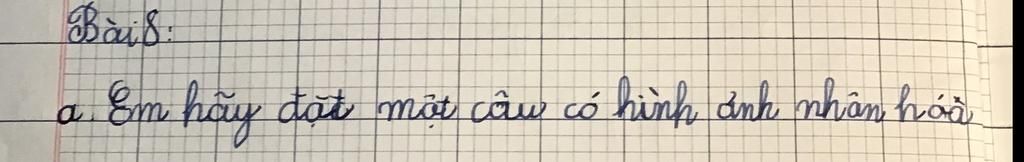 Bài 8:
a. Em hãy đặt một câu có hình ảnh nhân hóa